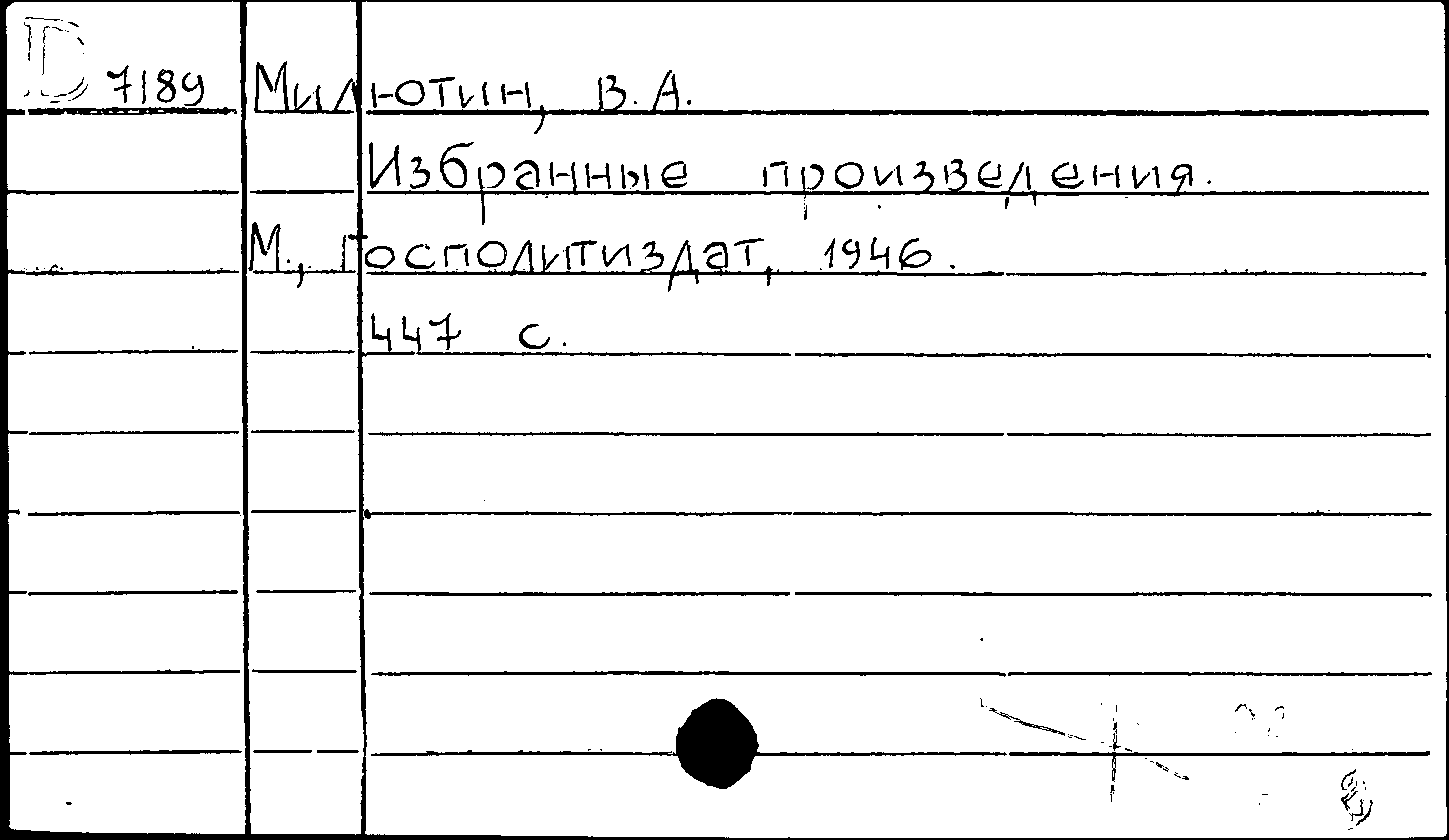 D 7189 Милютин, В.А.
Избранные произведения.
М., Госполитиздат, 1946.
447 с.